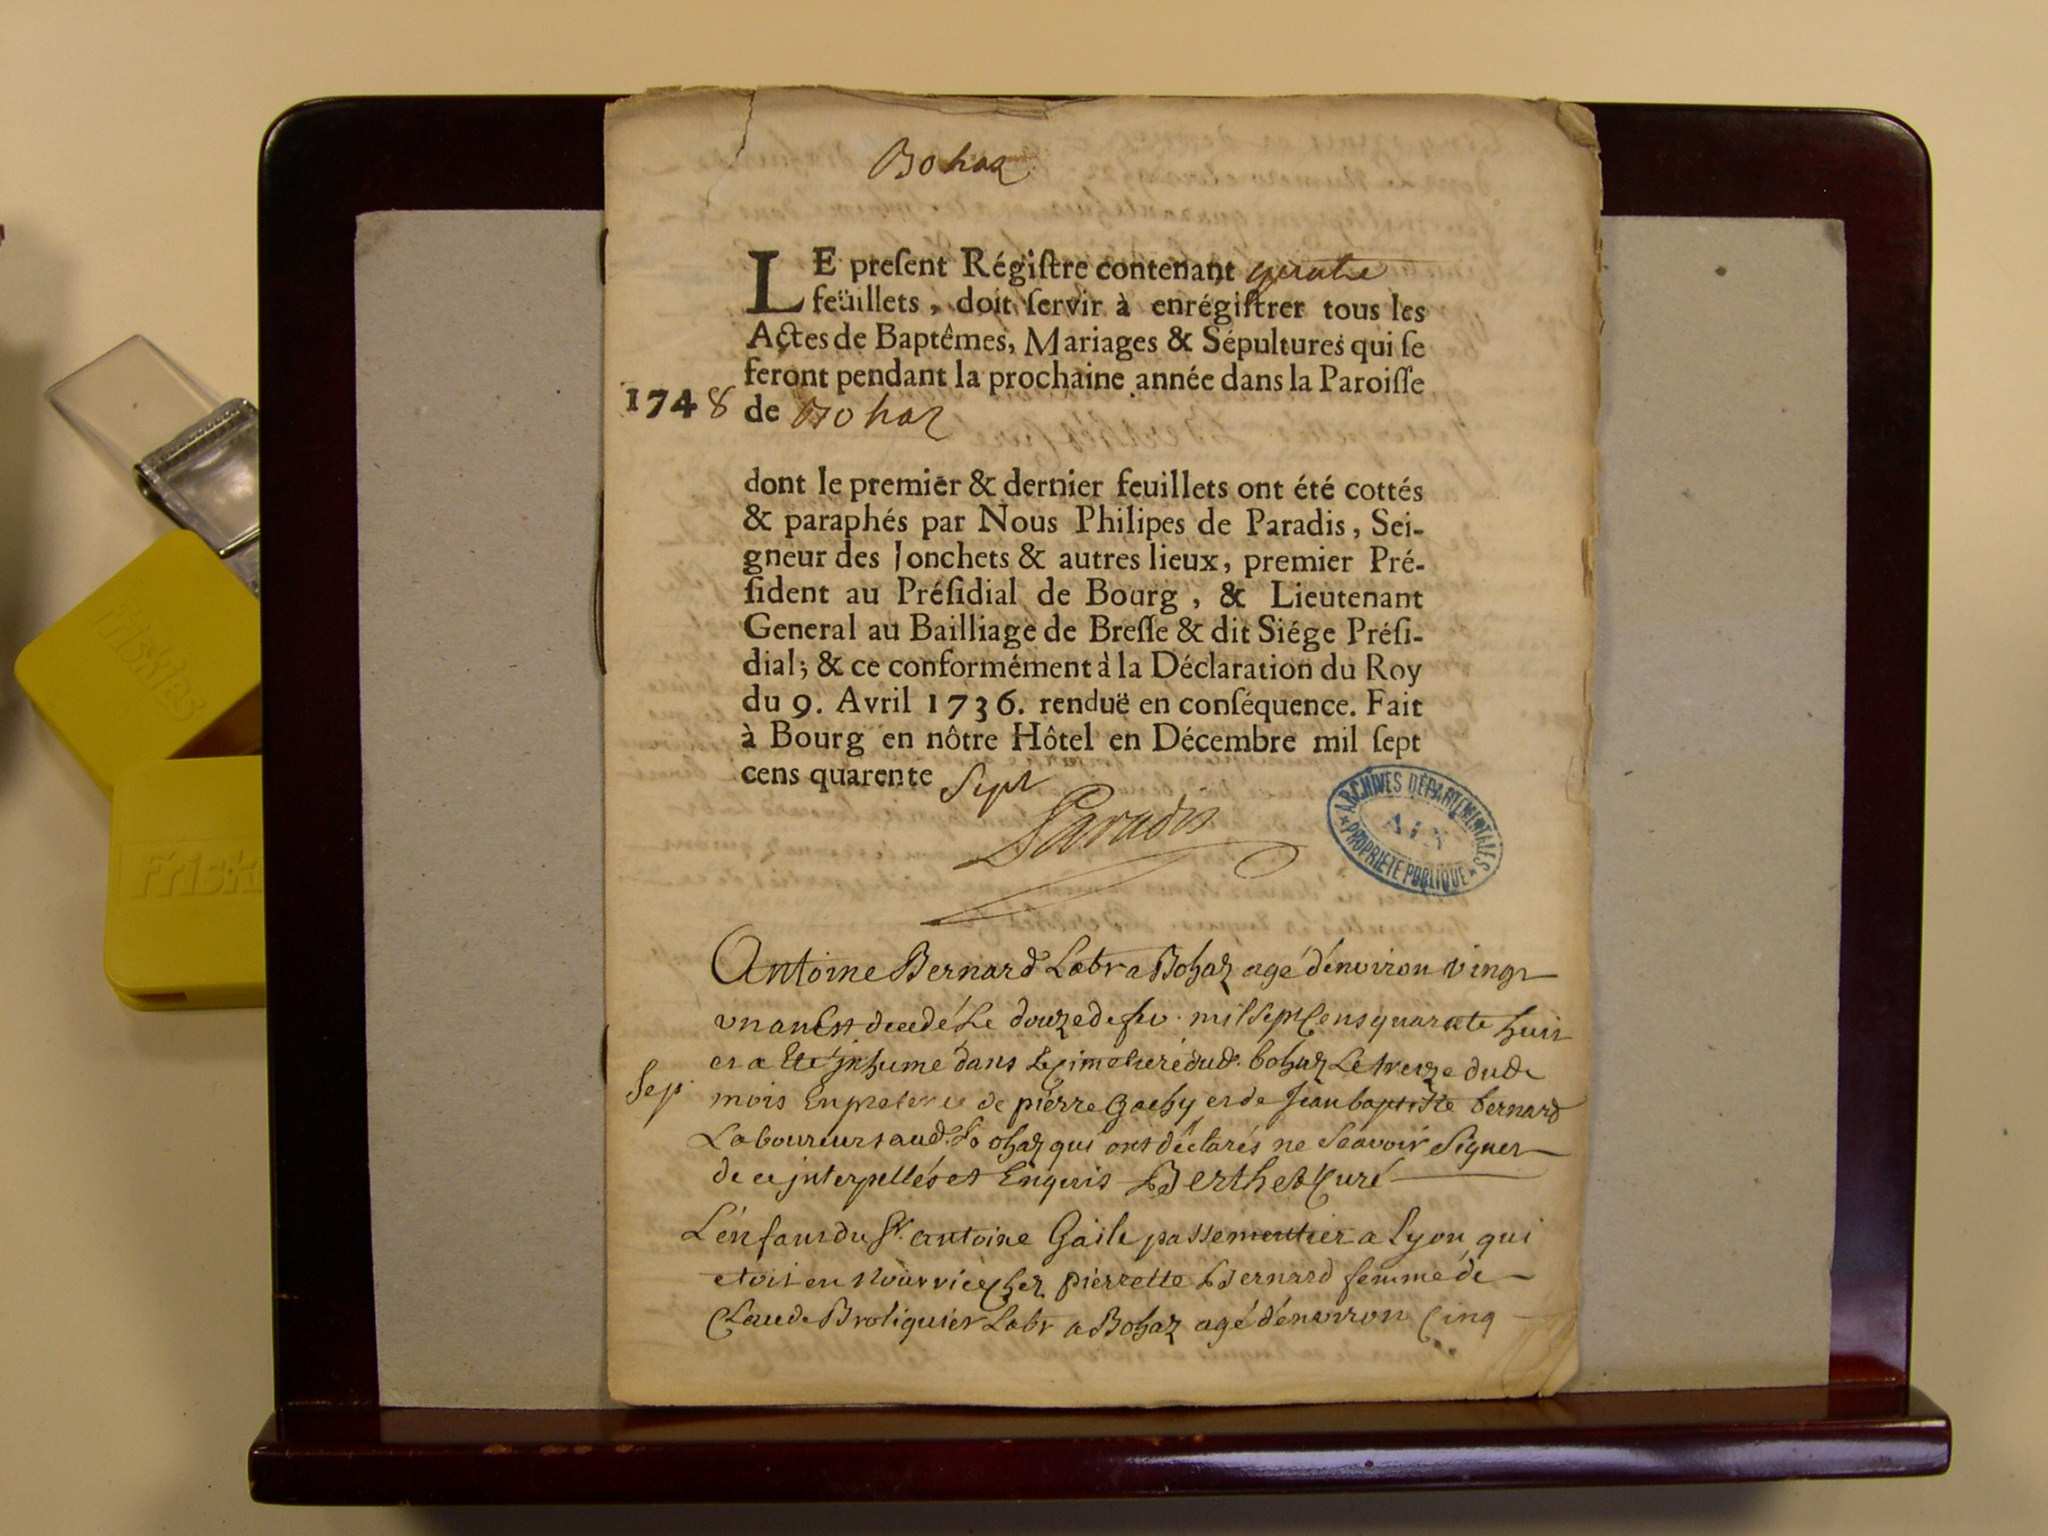 Bohaz
LE preſent Régiſtre contenant quatre
feüillets, doit ſervir à enrégiſtrer tous les
Actes de Baptêmes, Mariages & Sépultures qui ſe
feront pendant la prochaine année dans la Paroiſſe
1748 de Bohaz
dont le premier & dernier feuillets ont été cottés
& paraphés par Nous Philipes de Paradis, Sei-
gneur des Jonchets & autres lieux, premier Pré-
ſident au Préſidial de Bourg, & Lieutenant
General au Bailliage de Breſſe & dit Siége Préſi-
dial; & ce conformément à la Déclaration du Roy
du 9. Avril 1736. renduë en conſéquence. Fait
à Bourg en nôtre Hôtel en Décembre mil ſept
cens quarente Sept
Paradis
ARCHIVES DÉPARTEMENTALES
AIN
PROPRIÉTÉ PUBLIQUE
Antoine Bernard Labr a Bohaz agé d'environ vingt
un an Est decedé Le douze de fev. mil Sept Cens quarate huit
et a Eté inhume dans Le Cimetiere dud. bohaz Le treize dud.
Sep. mois En presence de pierre Gachy et de Jean baptiste bernard
Laboureurs aud. Bohaz qui ont déclarés ne Scavoir Signer
de ce interpellés et Enquis Berthet Curé
L'énfant du Sr. antoine Gaile passementier a Lyon qui
etoit en Nourrice Chez pierrette Bernard femme de
Claude Broliquier Labr a Bohaz agé d'environ Cinq
Friskies
Friski